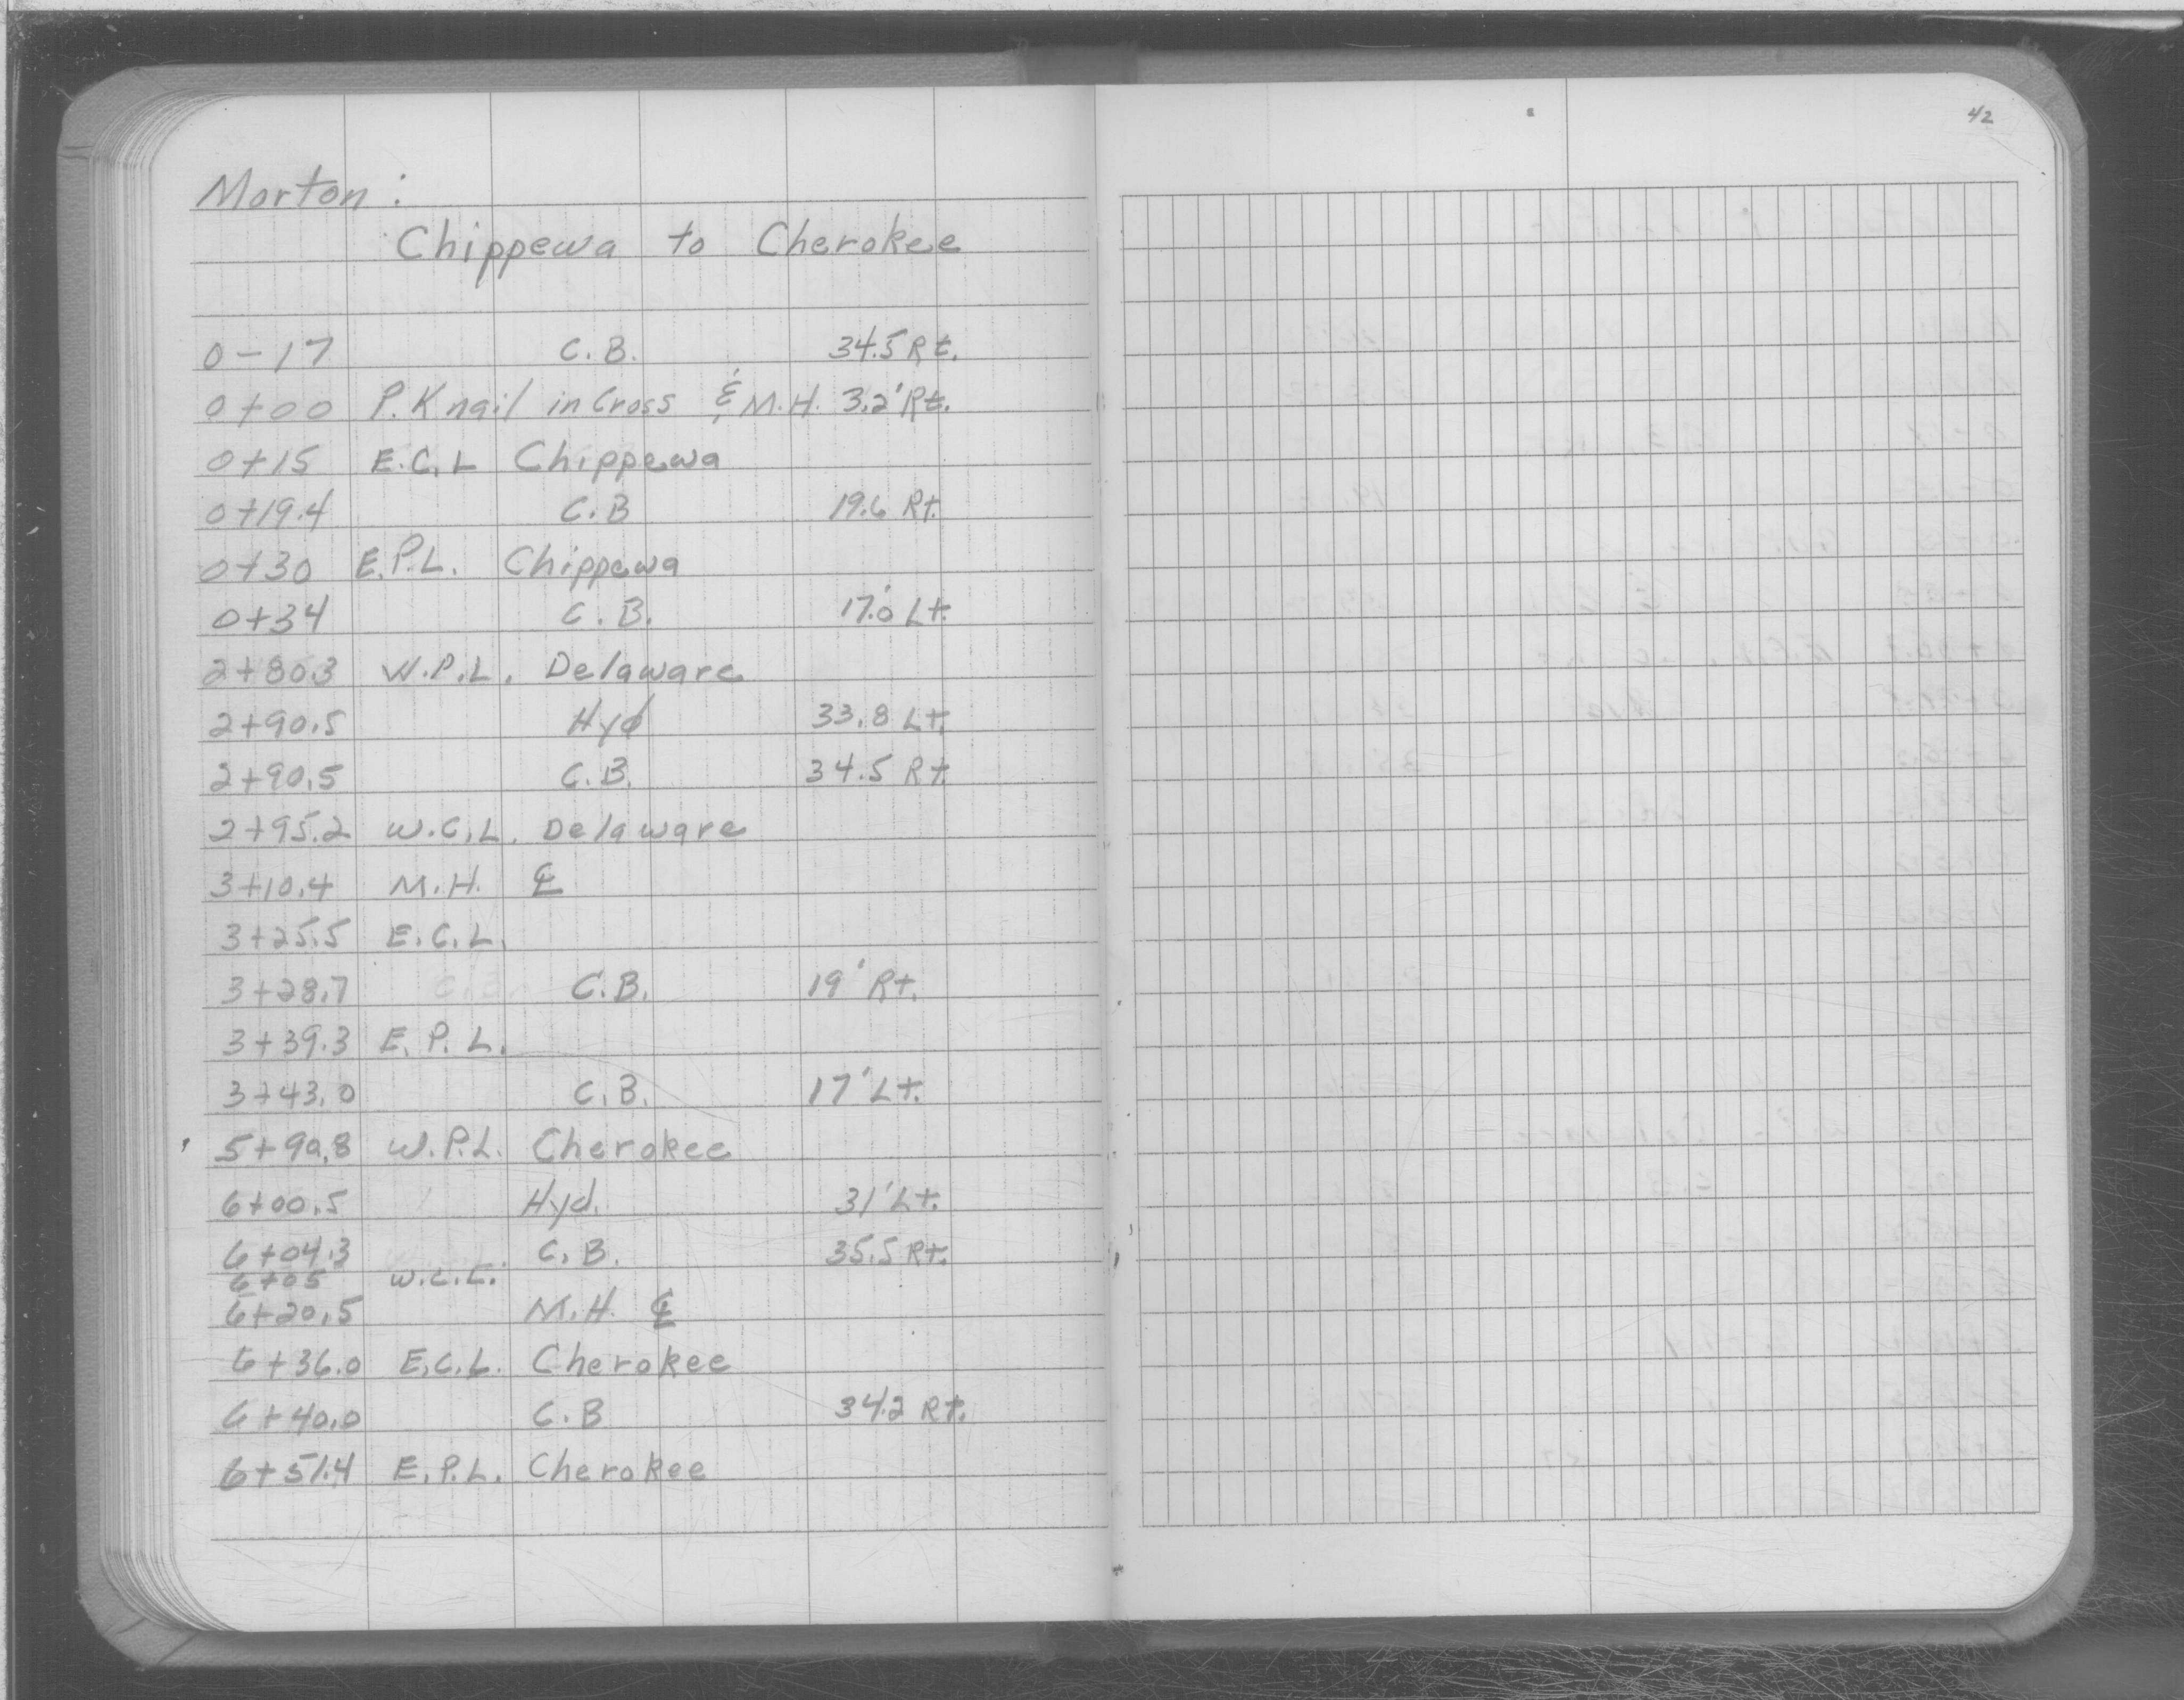 42
Morton :
Chippewa to Cherokee
0-17 C.B. 34.5 Rt.
0+00 P.K nail in Cross & M.H. 3.2' Rt.
0+15 E.C.L Chippewa
0+19.4 C.B 19.6 Rt.
0+30 E.P.L. Chippewa
0+34 C.B. 17.0' Lt.
2+80.3 W.P.L. Delaware
2+90.5 Hyd 33.8 Lt.
2+90.5 C.B. 34.5 Rt.
2+95.2 W.C.L. Delaware
3+10.4 M.H. ℄
3+25.5 E.C.L.
3+28.7 C.B. 19' Rt.
3+39.3 E.P.L.
3+43.0 C.B. 17' Lt.
5+90.8 W.P.L. Cherokee
6+00.5 Hyd. 31' Lt.
6+04.3 C.B. 35.5 Rt.
6+05 W.C.L.
6+20.5 M.H. ℄
6+36.0 E.C.L. Cherokee
6+40.0 C.B 34.2 Rt.
6+51.4 E.P.L. Cherokee